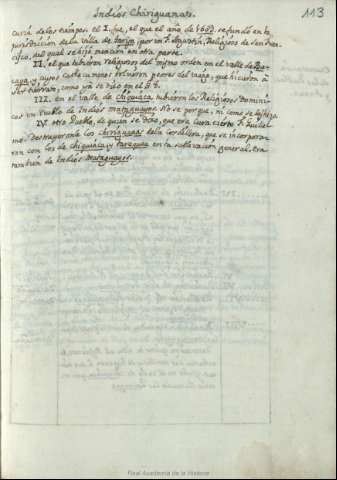 Indios Chiriguanas.
113
curia de los tiempos. el I. fue, el que el año de 1607. se fundó en la
jurisdiccion de la Villa de Tarija, por un F. Agustin, Religioso de San Fran-
cisco, del qual se hizo mencion en otra parte.
II. el que tubieron religiosos del mismo orden en el valle de
y, cuyos curas murieron peores del viage, que hicieron á
San, como ya se dixo en el §. 8.
III. en el valle de Chiquiaca tubieron los Religiosos Domini-
cos un Pueblo de Indios mataguayos. No se por que, ni como se deshizo.
IV. otro Pueblo, de quien se dixo, que era cura cierto F. Guille-
mo. Destruyeronle los chiriguanas de la Cordillera, que se incorpora-
ron con los de chiquiaca, y Tarequea en la sublevacion general. Era
tambien de Indios Mataguayos.
Real Academia de la Historia